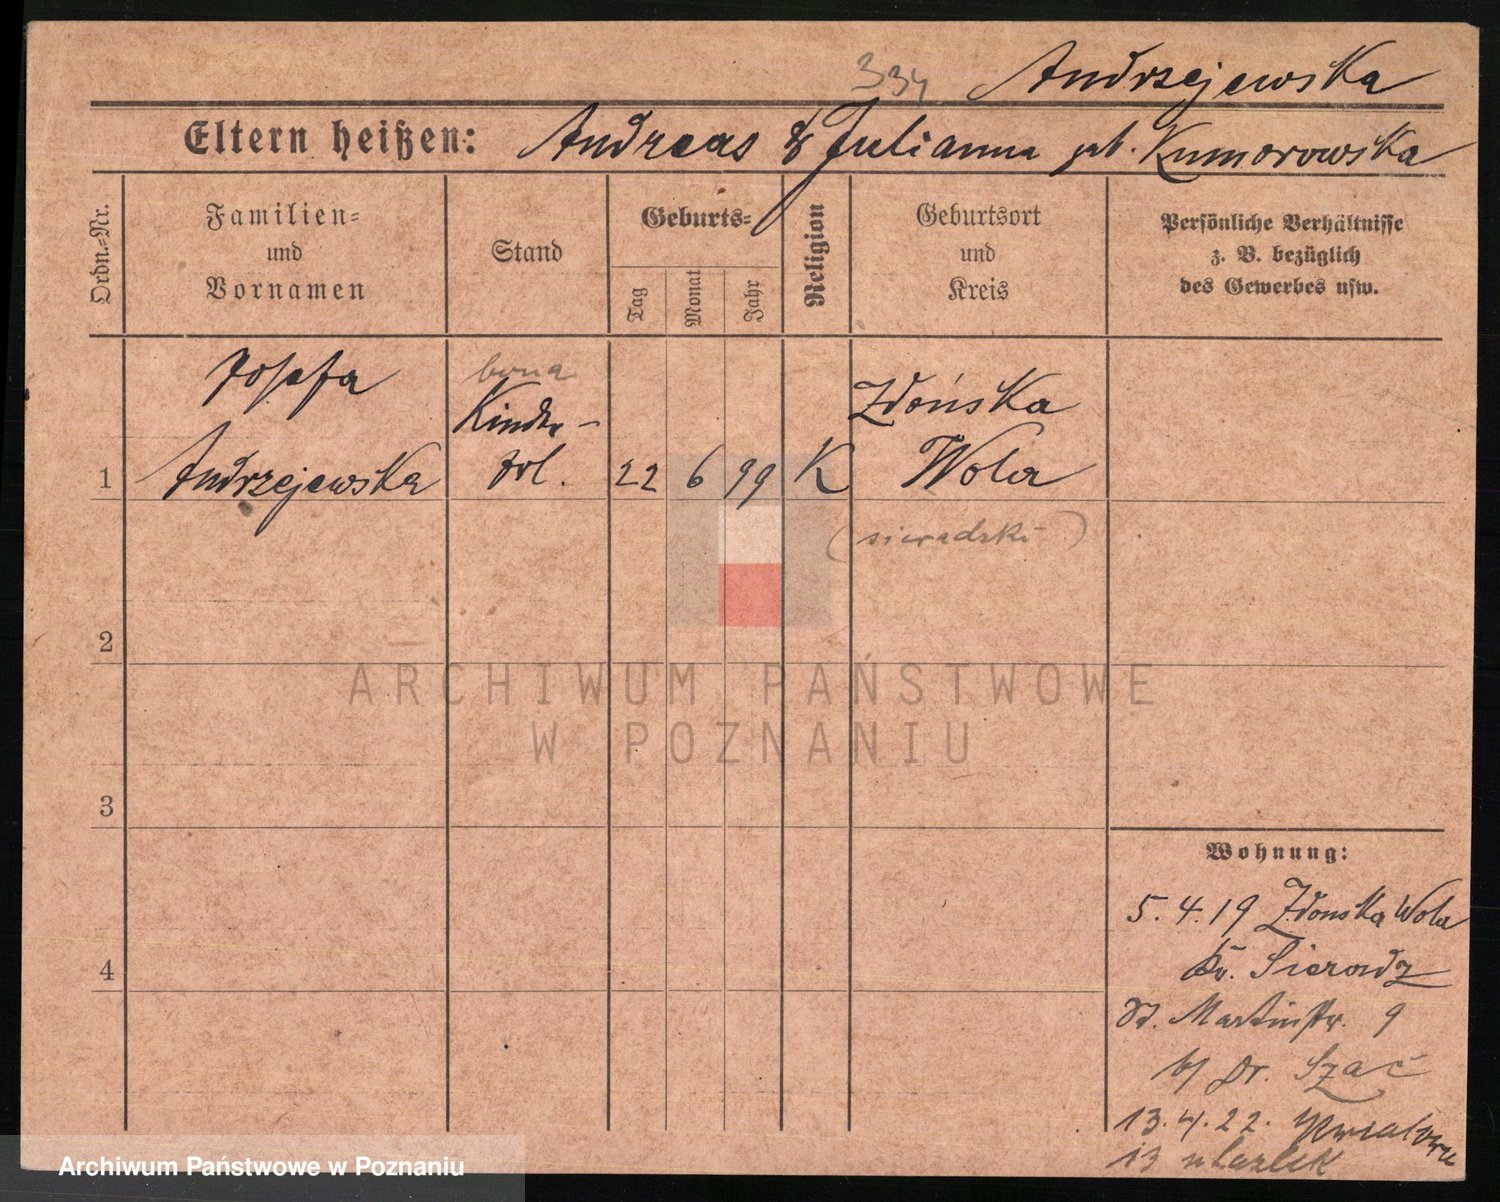 334 Andrzejewska
Eltern heißen: Andreas & Julianna geb. Kumorowska
Ordn.-Nr.
Familien-
und
Vornamen
Stand
Geburts-
Tag
Monat
Jahr
Religion
Geburtsort
und
Kreis
Persönliche Verhältnisse
z. B. bezüglich
des Gewerbes usw.
Josefa
bona
Kinder-
Zdońska
1 Andrzejewska frl. 22 6 99 K Wola
(sieradzki)
2
ARCHIWUM PAŃSTWOWE
W POZNANIU
3
Wohnung:
5.4.19 Zdonska Wola
4
Kr. Sieradz
St. Martinstr. 9
b/ Dr. Szac
13.4.22.
13
Archiwum Państwowe w Poznaniu